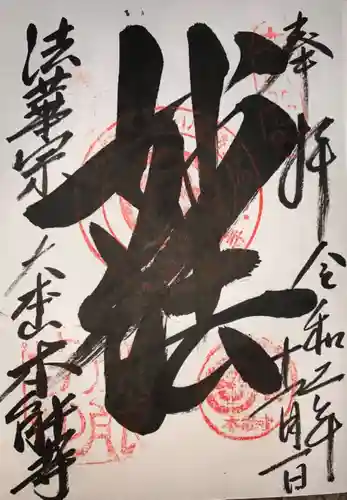 奉拝
令和五年
十一月一日
妙法
法華宗
大本山本能寺